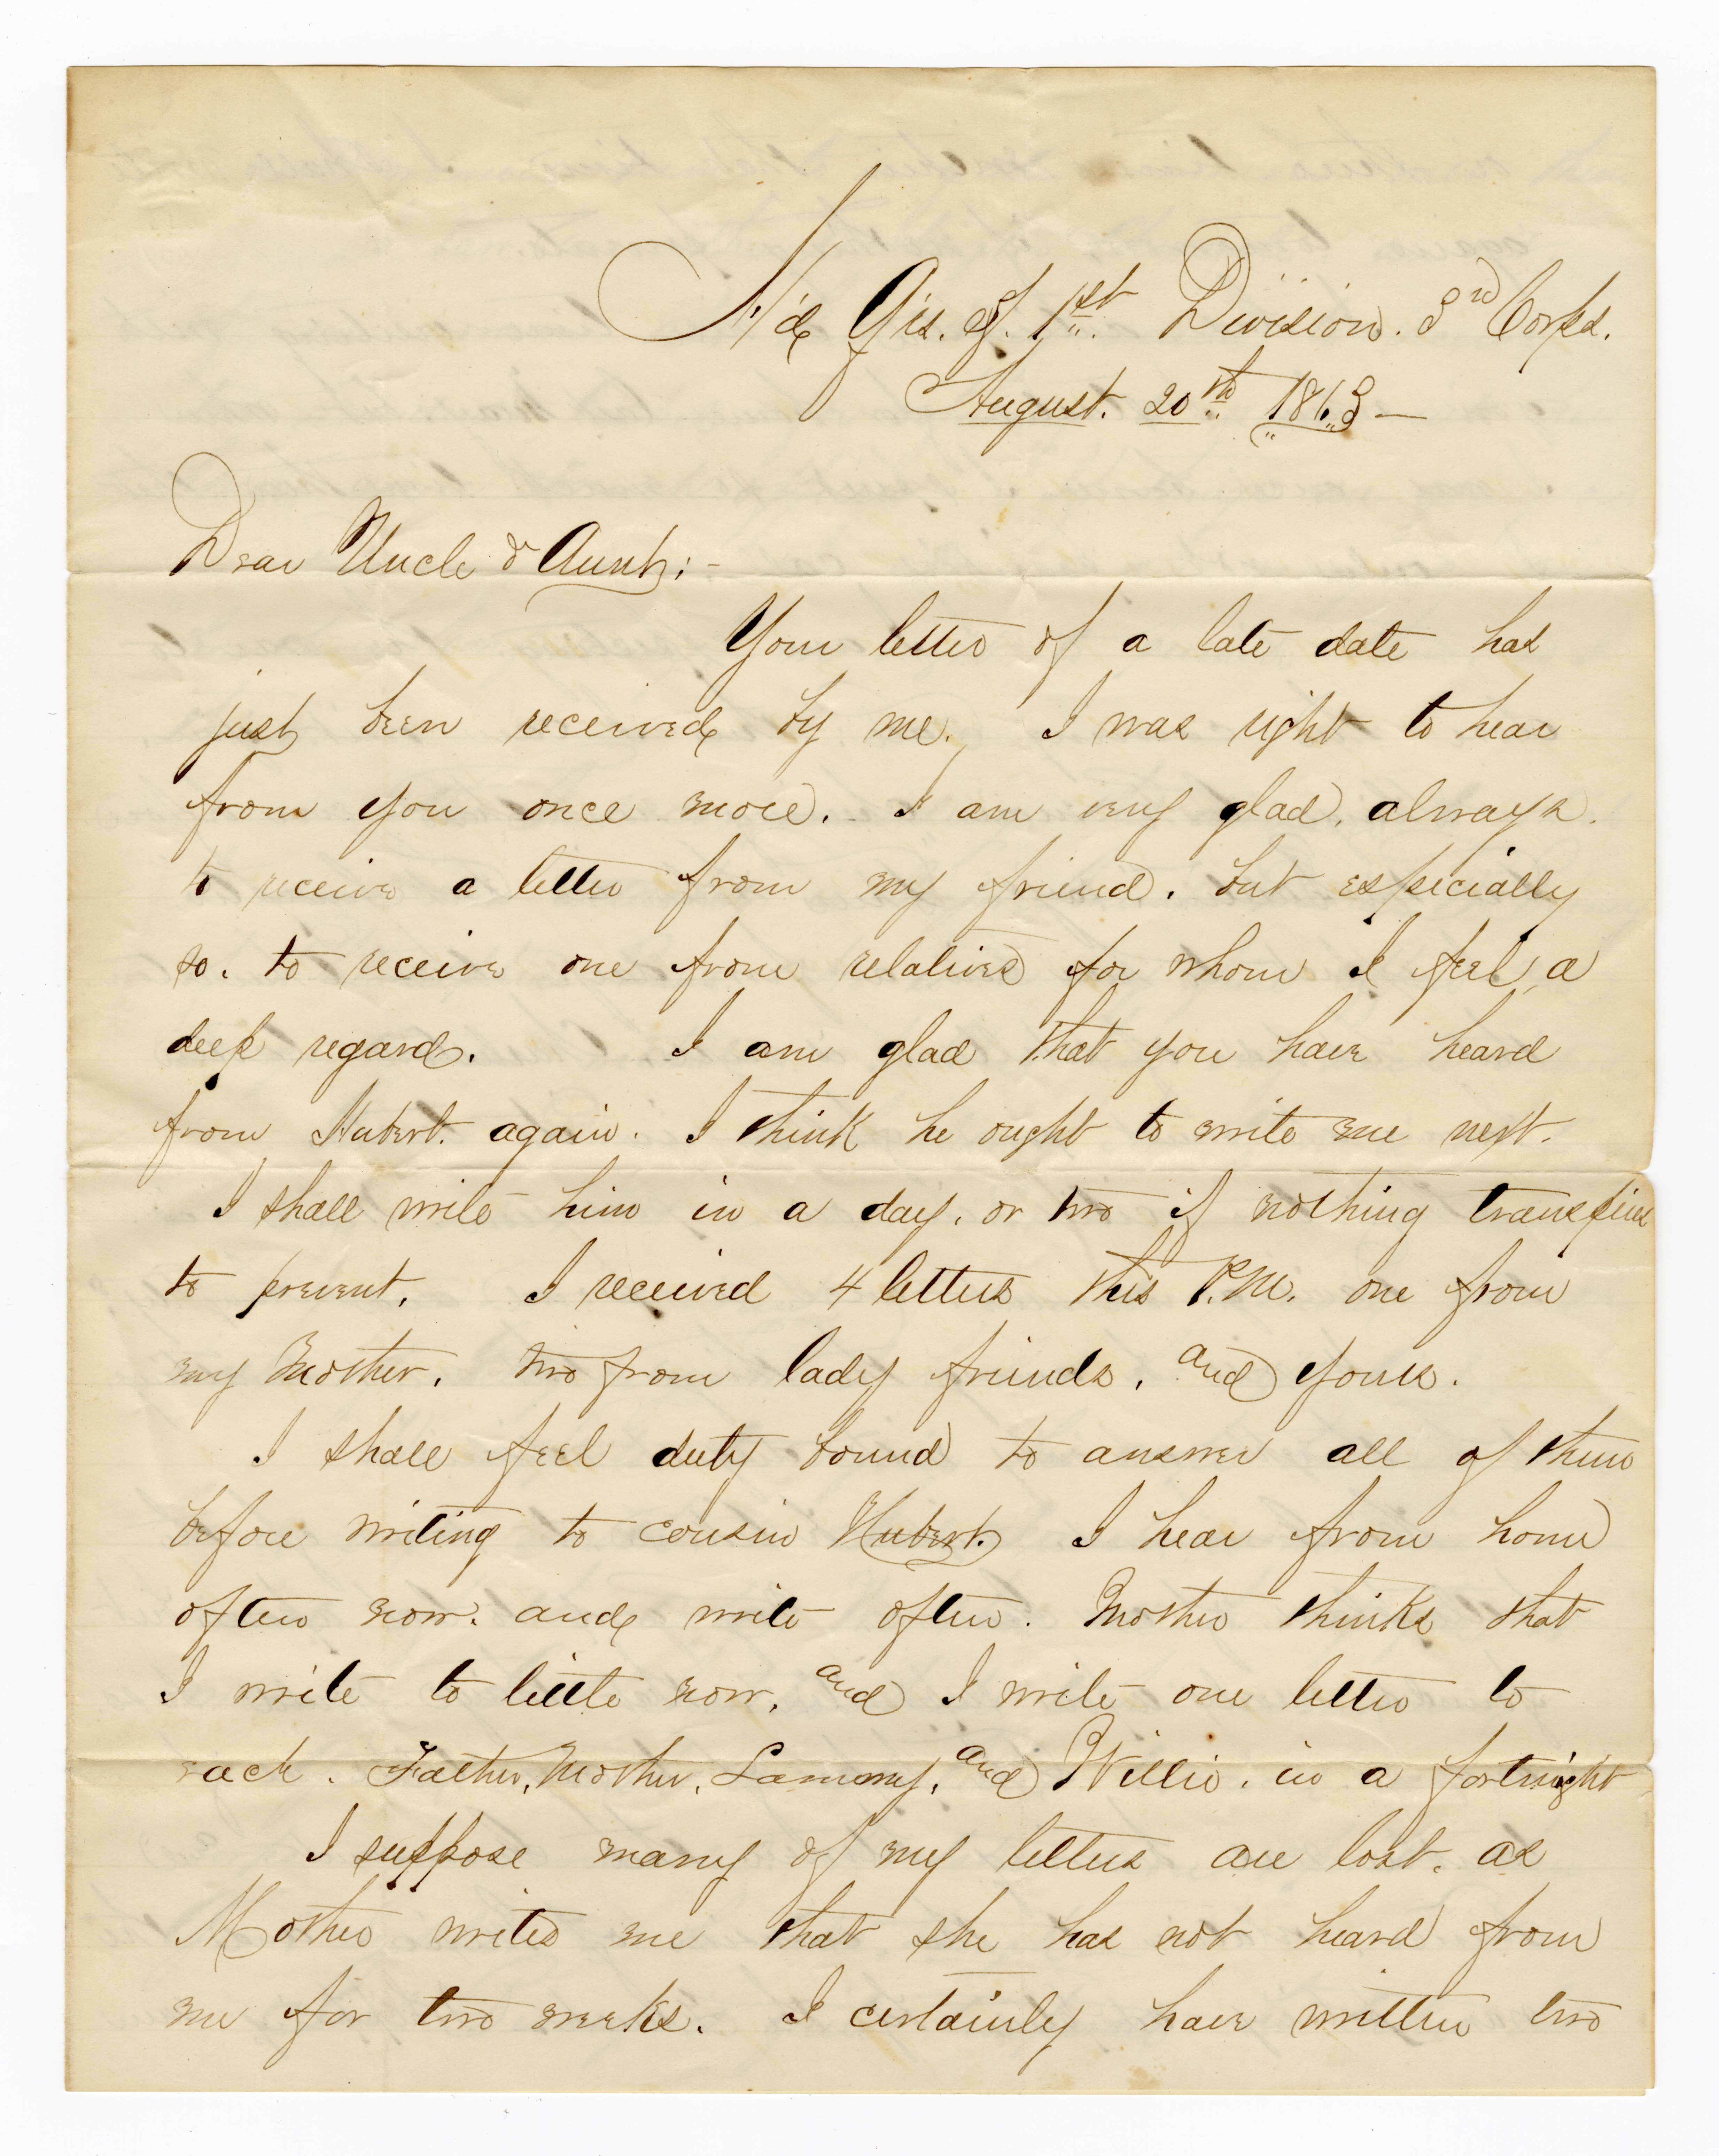 Hd Qrs. of. 1st Division. 3rd Corps.
August. 20th 1863 —
Dear Uncle & Aunt; -
Your letter of a late date has
just been received by me. I was right to hear
from you once more. I am very glad, always.
to receive a letter from my friend. but especially
so. to receive one from relatives for whom I feel a
deep regard. I am glad that you have heard
from Hubert. again. I think he ought to write me next.
I shall write him in a day, or two if nothing transpires
to prevent. I received 4 letters this P.M. one from
my Mother, two from lady friends, and yours.
I shall feel duty bound to answer all of them
before writing to cousin Hubert. I hear from home
often now. and write often. Mother thinks that
I write to little now, and I write one letter to
each. Father, Mother, and Willie. in a fortnight
I suppose many of my letters are lost. as
Mother writes me that she has not heard from
me for two weeks. I certainly have written two